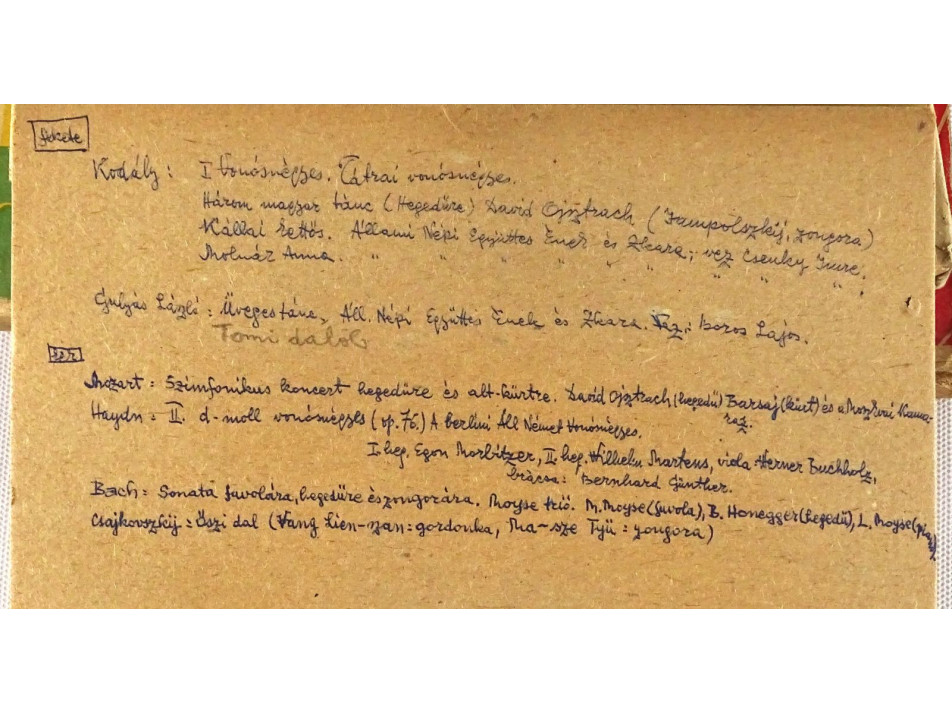 fekete
Kodály: I vonósnégyes. Tátrai vonósnégyes.
Három magyar tánc (Hegedűre) David Ojsztrach (Jampolszkij, zongora)
Kállai kettős. Állami Népi Együttes Ének és Zkara; vez Csenky Imre.
Molnár Anna. " " " " " " " " " " .
Gulyás László: Üvegestánc, Áll. Népi Együttes Ének és Zkara. Vez: Boros Lajos.
Tomi dalok
Mozart: Szimfonikus koncert hegedűre és alt-kürtre. David Ojsztrach (hegedű) Barsaj (kürt) és a Moszkvai Kamaraz.
Haydn: II. d-moll vonósnégyes (op. 76.) A berlini Áll Német Vonósnégyes.
I. heg. Egon Morbitzer, II. heg. Wilhelm Martens, viola Werner Buchholz,
brácsa: Bernhard Günther.
Bach: Sonata fuvolára, hegedűre és zongorára. Moyse trió. M. Moyse (fuvola), B. Honegger (hegedű), L. Moyse
Csajkovszkij: Őszi dal (Vang Lien-zan: gordonka, Ma-sze Tyü: zongora)